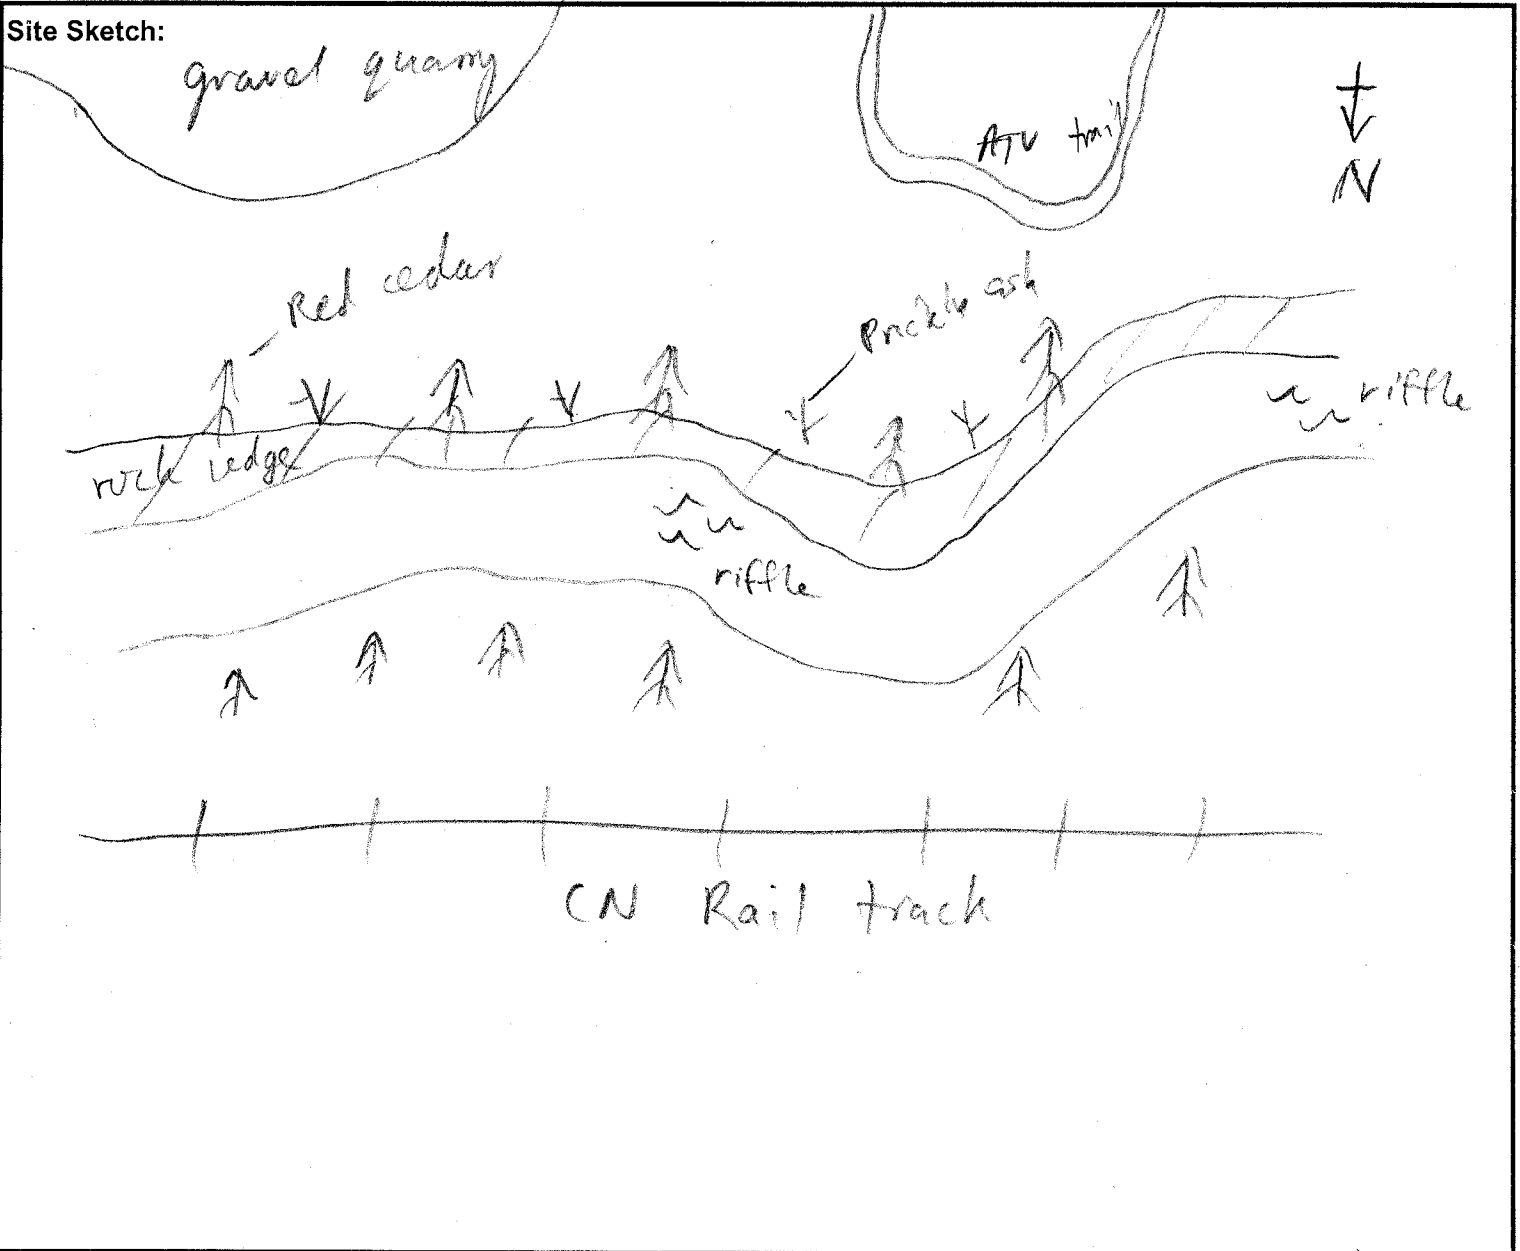 Site Sketch:
gravel quarry
ATV trail
N
Red cedar
Prickly ash
riffle
rock ledge
riffle
CN Rail track